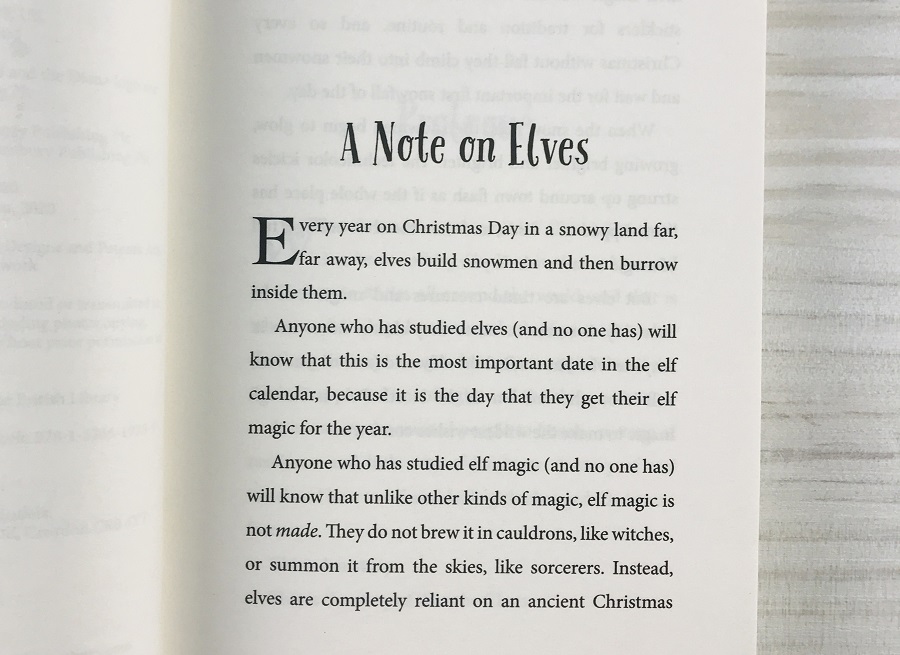 A Note on Elves
Every year on Christmas Day in a snowy land far,
far away, elves build snowmen and then burrow
inside them.
Anyone who has studied elves (and no one has) will
know that this is the most important date in the elf
calendar, because it is the day that they get their elf
magic for the year.
Anyone who has studied elf magic (and no one has)
will know that unlike other kinds of magic, elf magic is
not made. They do not brew it in cauldrons, like witches,
or summon it from the skies, like sorcerers. Instead,
elves are completely reliant on an ancient Christmas